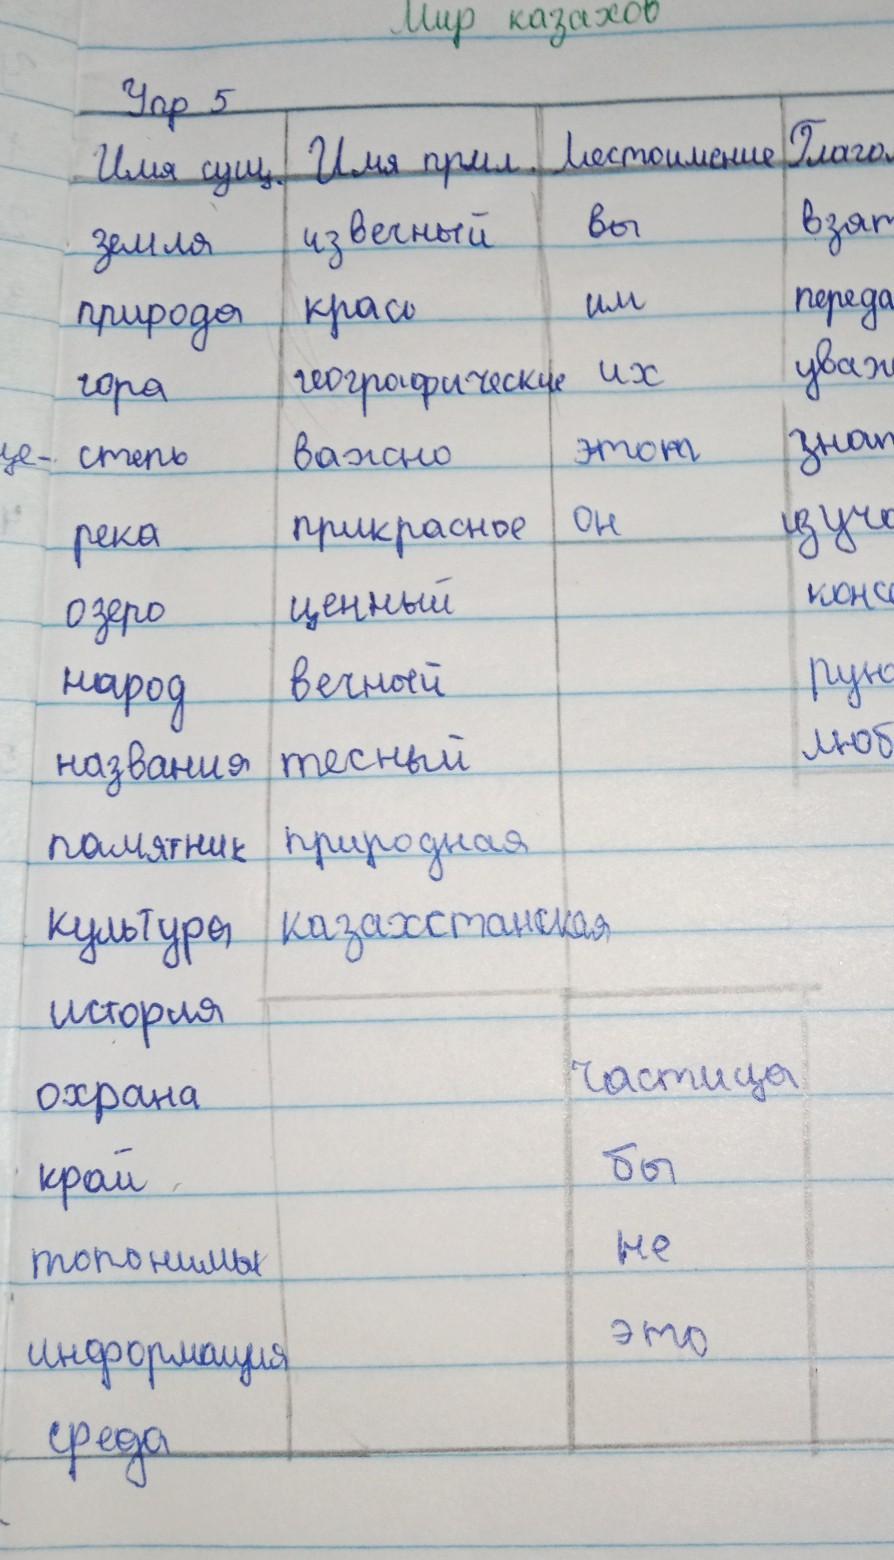 Мир казахов
Упр 5
Имя сущ. Имя прил. Местоимение Глагол
земля извечный вы взят
природа красо им переда
гора географические их уваж
це- степь важно этот знат
река прикрасное он изуча
озеро ценный конс
народ вечный рук
названия тесный люб
памятник природная
культура казахстанская
история
охрана частица
край бы
топонимы не
информация это
среда